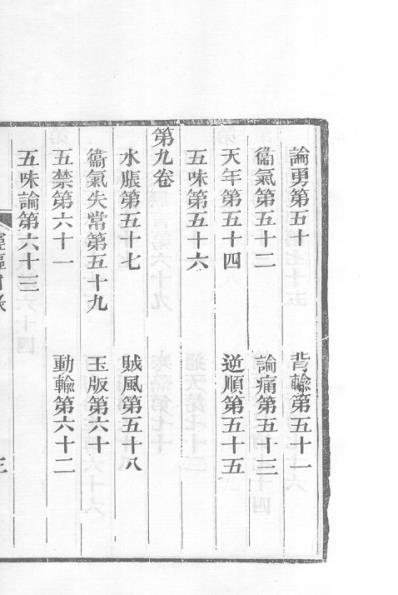 論勇第五十 背輸第五十一
衞氣第五十二 論痛第五十三
天年第五十四 逆順第五十五
五味第五十六
第九卷
水脹第五十七 賊風第五十八
衞氣失常第五十九 玉版第六十
五禁第六十一 動輸第六十二
五味論第六十三